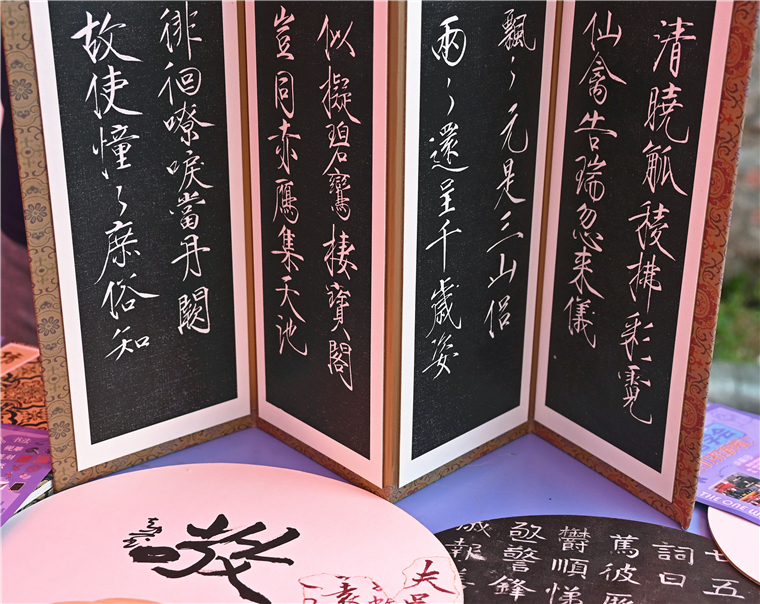 清曉觚稜拂彩霓
仙禽告瑞忽来儀
飄〻元是三山侶
兩〻還呈千歲姿
似擬碧鸞棲寶閣
豈同赤鴈集天池
徘徊嘹唳當丹闕
故使憧〻庶俗知
五
詞曰
篤彼
鬱順悌
警鋒
報
THE ONE W